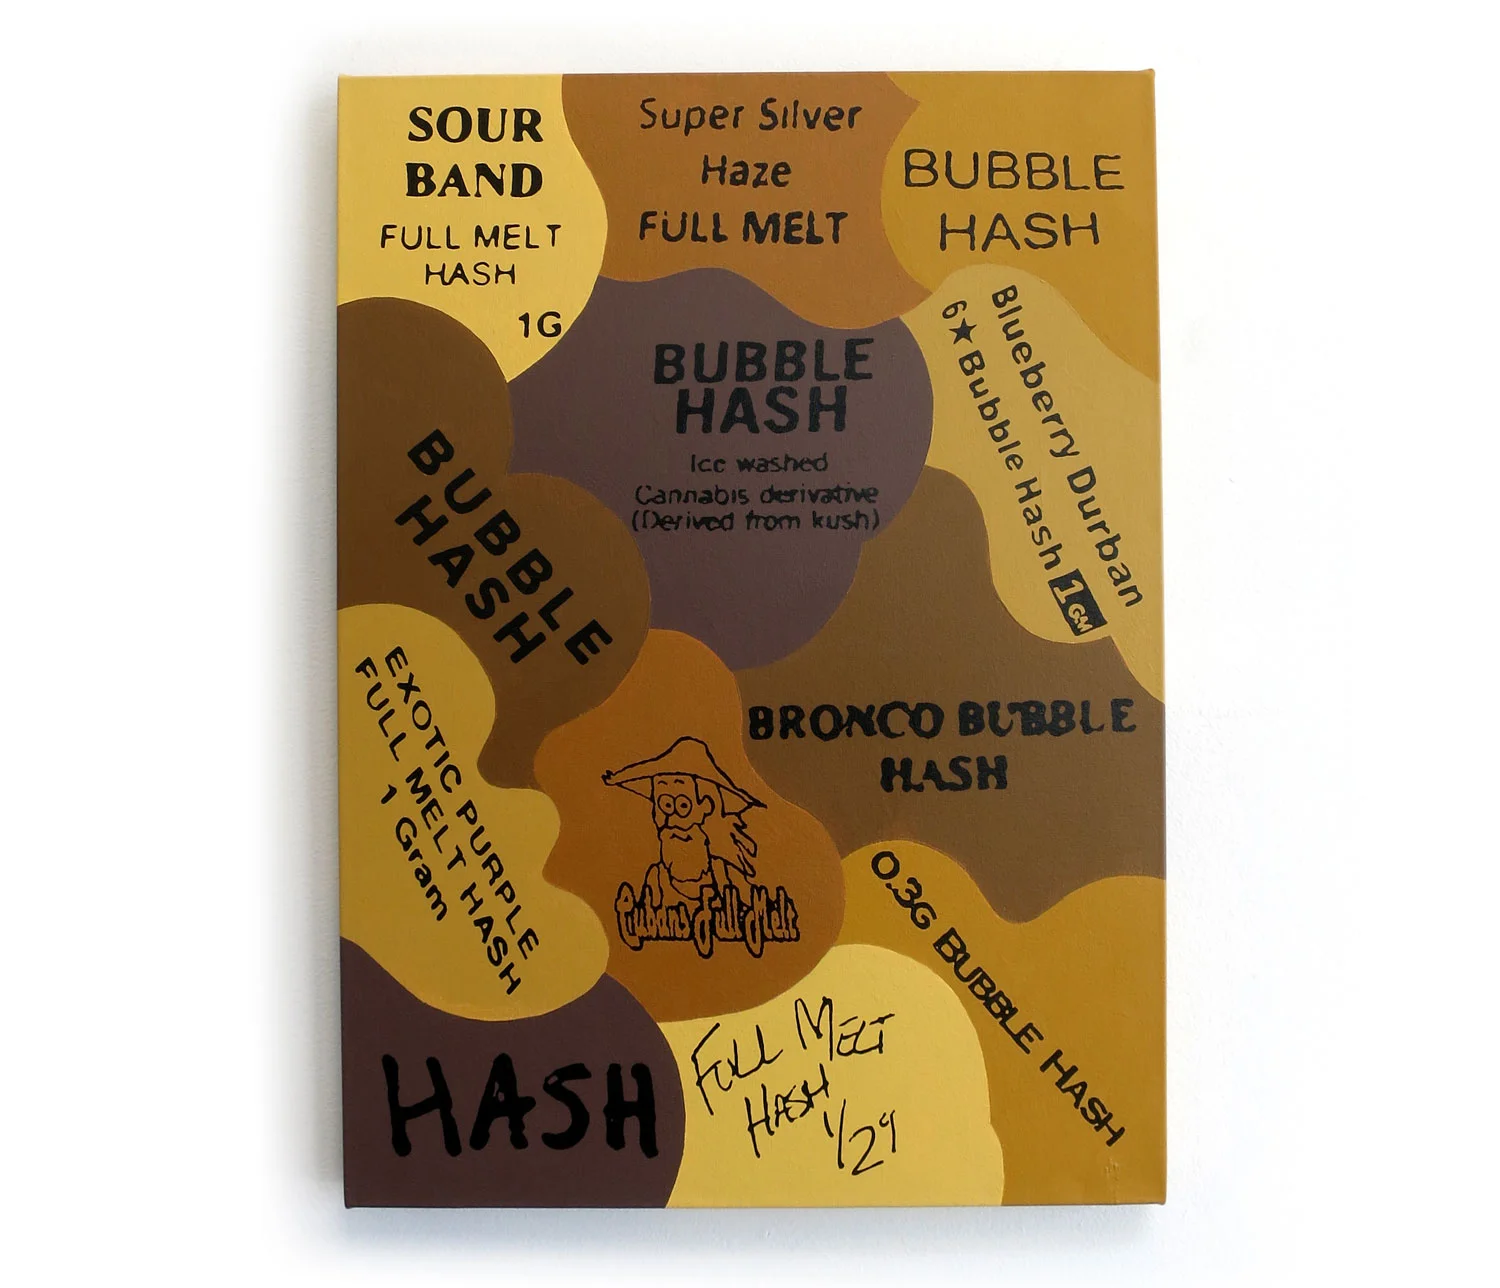 SOUR
BAND
FULL MELT
HASH
1G
Super Silver
Haze
FULL MELT
BUBBLE
HASH
BUBBLE
HASH
Ice washed
Cannabis derivative
(Derived from kush)
Blueberry Durban
6★Bubble Hash 1GM
BUBBLE
HASH
BRONCO BUBBLE
HASH
EXOTIC PURPLE
FULL MELT HASH
1 Gram
Cubans Full Melt
0.3G BUBBLE HASH
HASH
FULL MELT
HASH
1/29